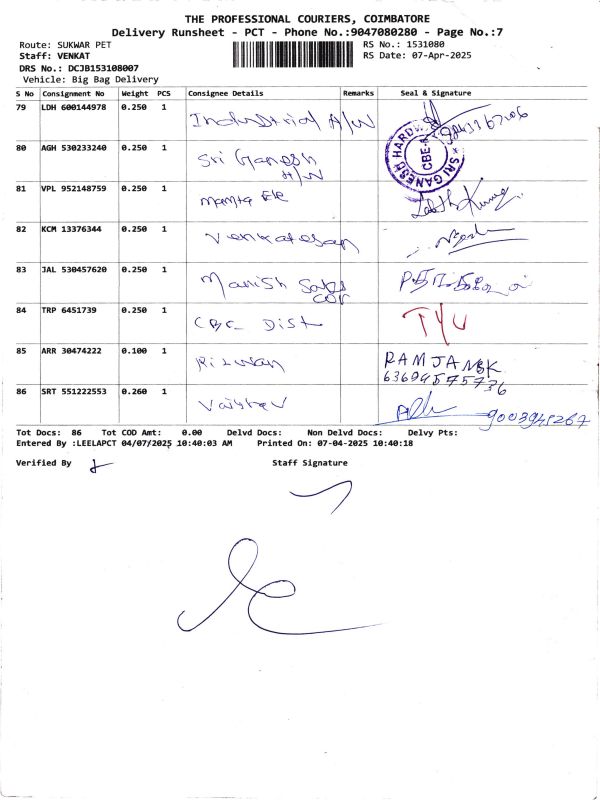 THE PROFESSIONAL COURIERS, COIMBATORE
Delivery Runsheet - PCT - Phone No.:9047080280 - Page No.:7
Route: SUKWAR PET
RS No.: 1531080
Staff: VENKAT
RS Date: 07-Apr-2025
DRS No.: DCJB153108007
Vehicle: Big Bag Delivery
S No Consignment No Weight PCS Consignee Details Remarks Seal & Signature
79 LDH 600144978 0.250 1 Industrial H/W
80 AGH 530233240 0.250 1 Sri Ganesh H/W
SRI GANESH HARDWARE
CBE
81 VPL 952148759 0.250 1 mamta Ele
82 KCM 13376344 0.250 1 Venkatesan
83 JAL 530457620 0.250 1 Manish Sales Cor
84 TRP 6451739 0.250 1 CBC Dist TYU
85 ARR 30474222 0.100 1 Rizwan RAMJAN SK
86 SRT 551222553 0.260 1 Vaishnav 9003945267
Tot Docs: 86 Tot COD Amt: 0.00 Delvd Docs: Non Delvd Docs: Delvy Pts:
Entered By :LEELAPCT 04/07/2025 10:40:03 AM Printed On: 07-04-2025 10:40:18
Verified By Staff Signature